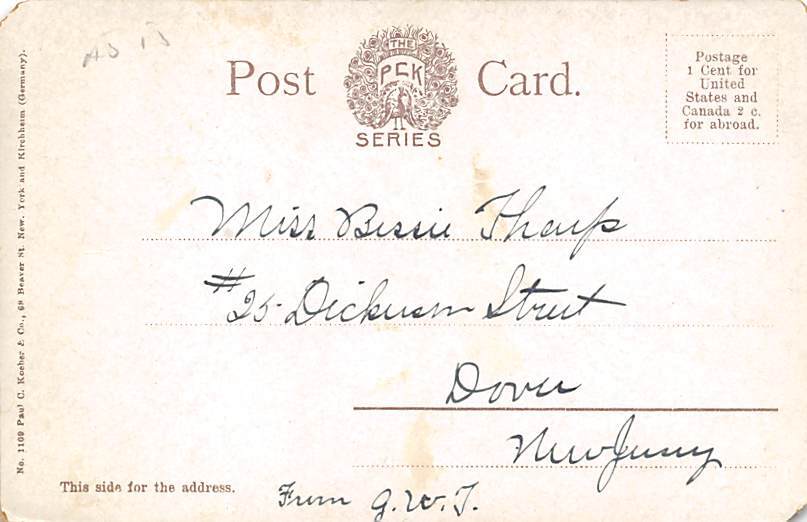 Post Card.
THE
PCK
SERIES
Postage
1 Cent for
United
States and
Canada 2 c.
for abroad.
Miss Bessie Tharp
#25 Dickerson Street
Dover
New Jersey
This side for the address.
From G.W.T.
No. 1109 Paul C. Koeber & Co., 68 Beaver St. New. York and Kirchheim (Germany).